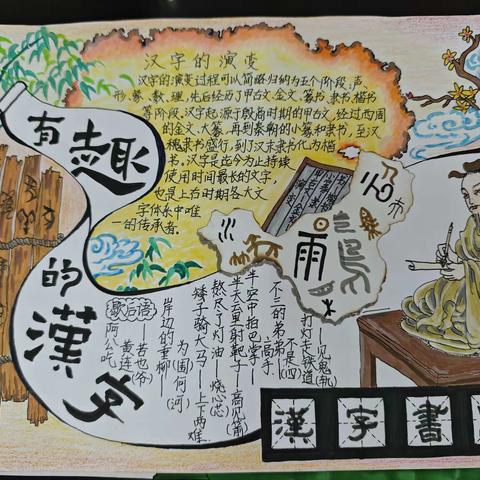 有趣的漢字
汉字的演变
汉字的演变过程可以简略归纳为五个阶段:声
形、象、数、理,先后经历了甲古文、金文、篆书、隶书、楷书
等阶段。汉字起源于殷商时期的甲古文,经过西周
的金文、大篆,再到秦朝的小篆和隶书,至汉
魏隶书盛行,到了汉末隶书化为楷
书。汉字是迄今为止持续
使用时间最长的文字,
也是上古时期各大文
字体系中唯
一的传承者。
雨
歇后语
阿公吃黄连——苦也(爷)
岸边的垂柳
为围何(河)
矮子骑大马——上下两难
熬尽了灯油——烧心(芯)
半天云里射靶子——高见(箭)
半空中拍巴掌——高手
不三的弟弟——不是(四)
打灯夫铁道——见鬼(轨)
漢字書